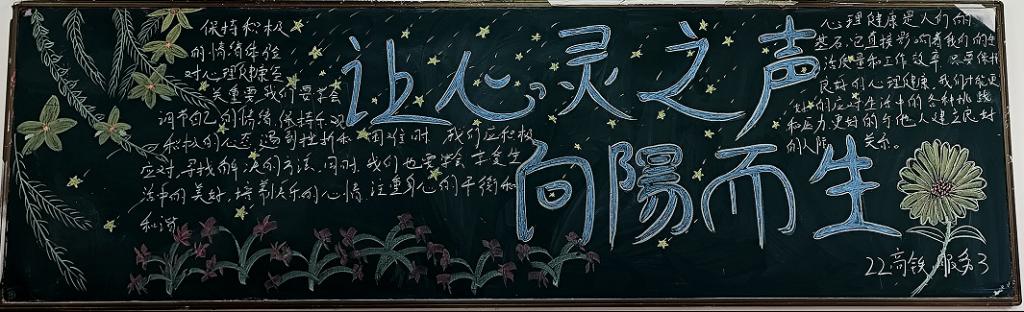 保持积极
的情绪体验
对心理健康至
关重要我们要学会
调节自己的情绪,保持乐观
积极的心态,遇到挫折和困难时,我们应积极
应对,寻找解决的方法,同时,我们也要学会享受生
活中的美好,培养快乐的心情,注重身心的平衡和
和谐
让心灵之声
向陽而生
心理健康是人们的
基石,它直接影响着我们的生
活质量和工作效率,只要保持
良好的心理健康,我们才能更
好的应对生活中的各种挑战
和压力,更好的与他人建立良好
的人际关系。
22高铁服务3